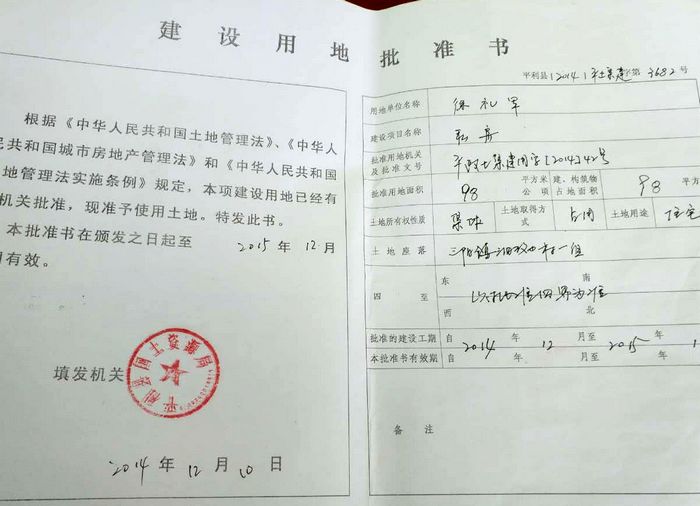 建设用地批准书
根据《中华人民共和国土地管理法》、《中华人
民共和国城市房地产管理法》和《中华人民共和国
地管理法实施条例》规定，本项建设用地已经有
机关批准，现准予使用土地。特发此书。
本批准书在颁发之日起至 2015 年 12 月
有效。
填发机关
平利县国土资源局
2014 年 12 月 10 日
平利县〔2014〕平土集建字第3682号
用地单位名称 徐礼军
建设项目名称
批准用地机关及批准文号 平政土集建用字[2014]42号
批准用地面积 98 平方米 公项 建、构筑物占地面积 98 平方
土地所有权性质 集体 土地取得方式 占用 土地用途 住宅
土地座落 三阳镇 村一组
四至 东 南 西 北
以实地准四界为准
批准的建设工期 自 2014 年 12 月至 2015 年 1
本批准书有效期 自 年 月至 年
备注